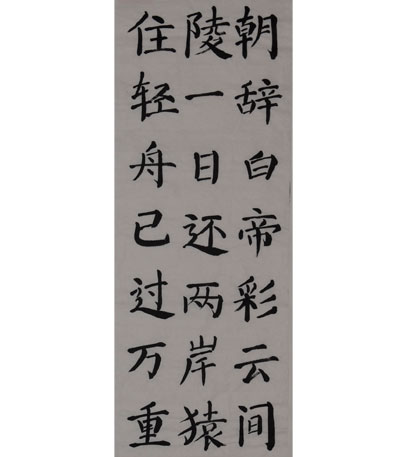 朝辞白帝彩云间
陵一日还两岸猿
住轻舟已过万重